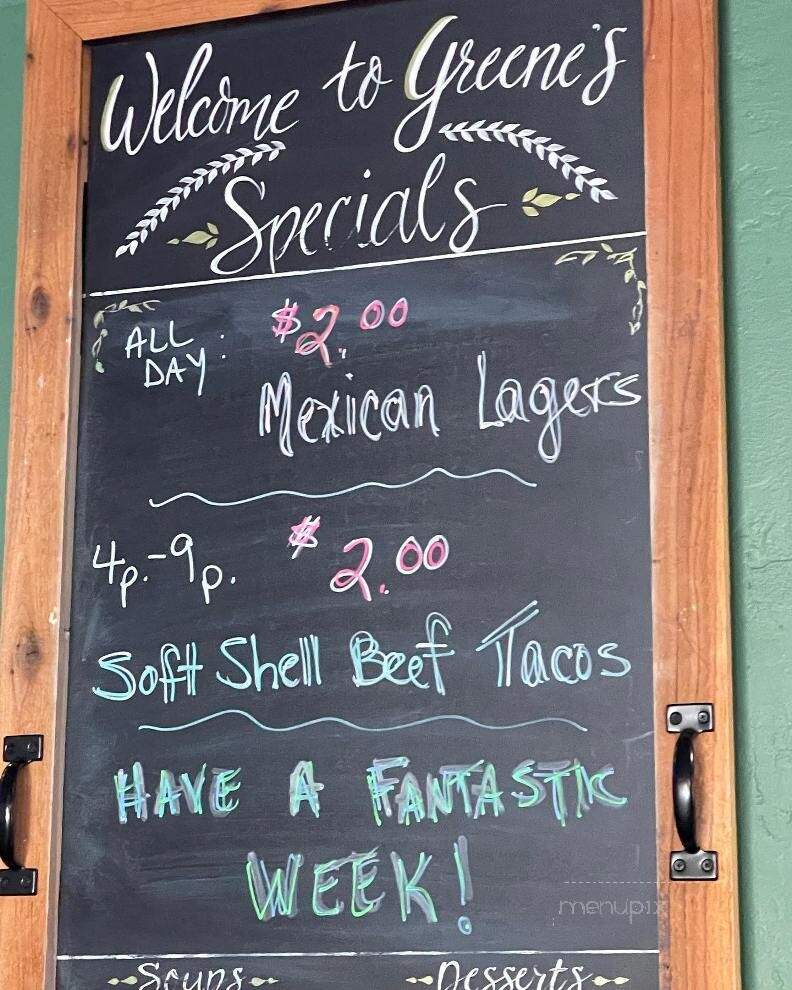 Welcome to Greene's
Specials
ALL DAY: $2.00
Mexican Lagers
4p.-9p. $2.00
Soft Shell Beef Tacos
HAVE A FANTASTIC
WEEK!
menupix
Soups Desserts